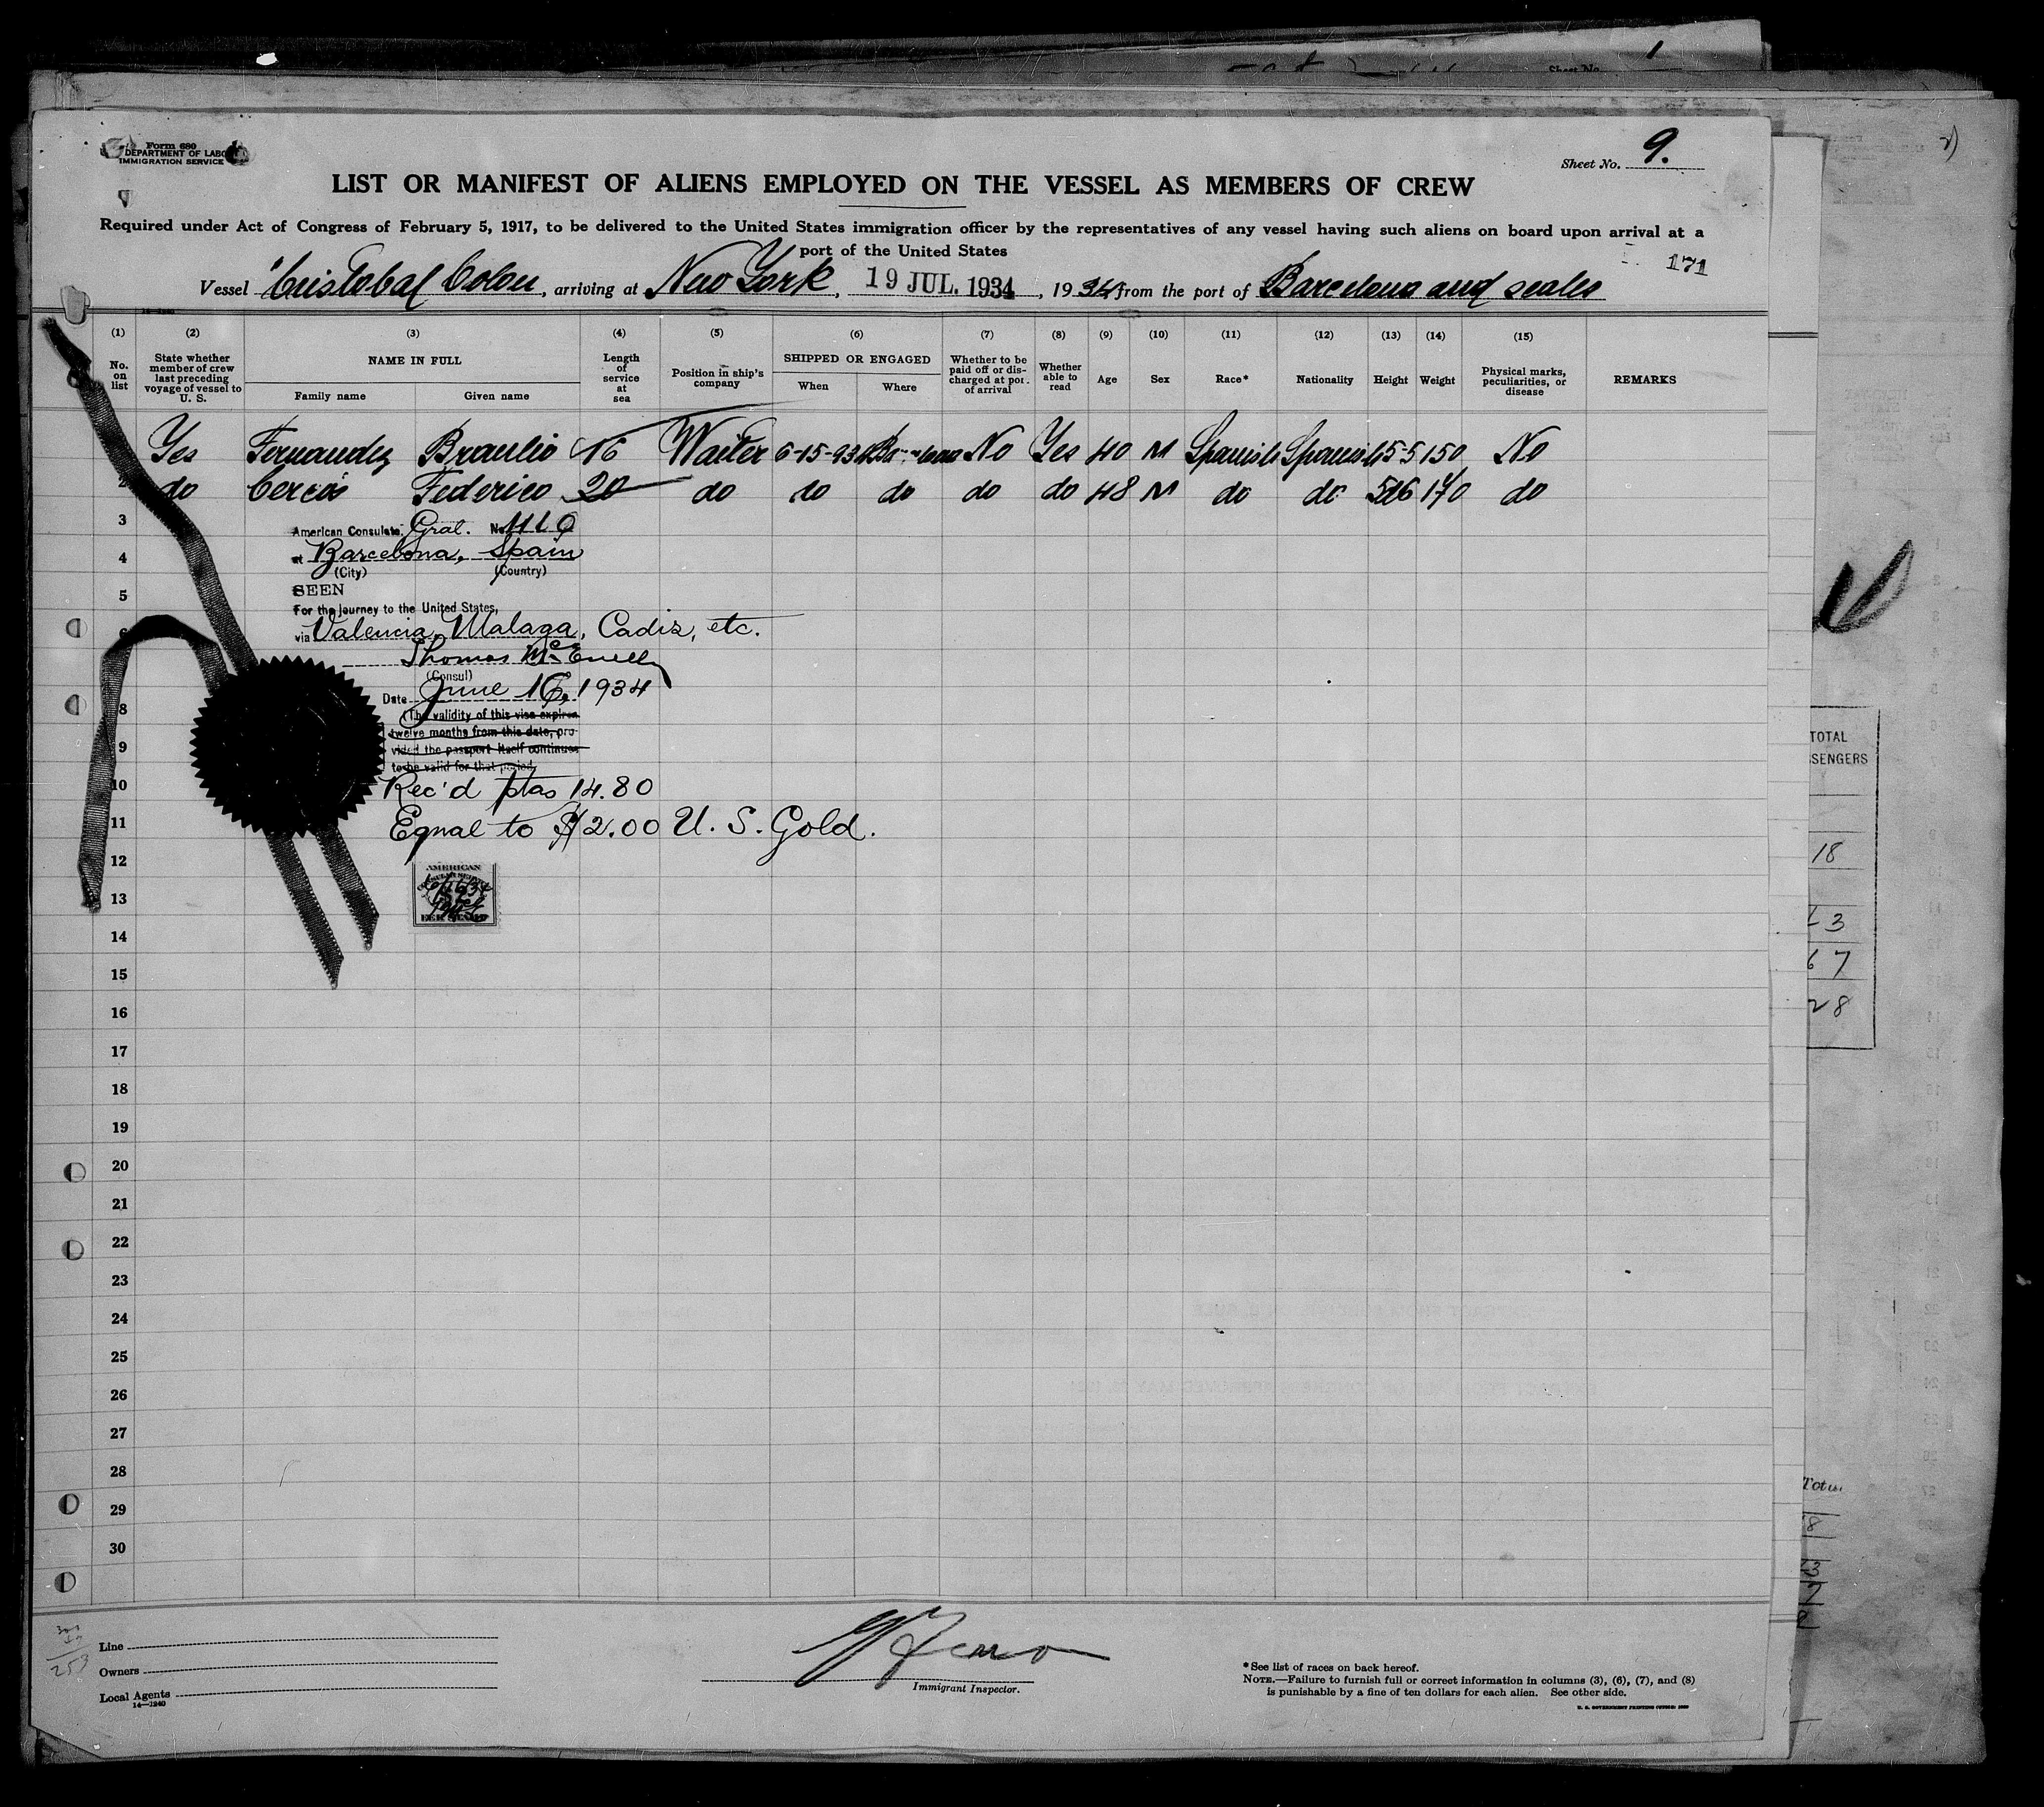 Form 680
DEPARTMENT OF LABOR
IMMIGRATION SERVICE
Sheet No. 9.
LIST OR MANIFEST OF ALIENS EMPLOYED ON THE VESSEL AS MEMBERS OF CREW
Required under Act of Congress of February 5, 1917, to be delivered to the United States immigration officer by the representatives of any vessel having such aliens on board upon arrival at a
port of the United States
171
Vessel "Cristobal Colon, arriving at New York, 19 JUL. 1934, 1934 from the port of Barcelona and scales
(1) (2) (3) (4) (5) (6) (7) (8) (9) (10) (11) (12) (13) (14) (15)
No. on list
State whether member of crew last preceding voyage of vessel to U. S.
NAME IN FULL
Family name Given name
Length of service at sea
Position in ship's company
SHIPPED OR ENGAGED
When Where
Whether to be paid off or discharged at port of arrival
Whether able to read
Age Sex Race* Nationality Height Weight
Physical marks, peculiarities, or disease
REMARKS
Yes Fernandez Braulio 16 Waiter 6-15-934 No Yes 40 M Spanish Spanish 5-5 150 No
2 do Cercós Federico 20 do do do do do 48 M do do 5-6 170 do
3
American Consulate Gral. No.
4
at Barcelona, Spain
(City) (Country)
5
SEEN
For the journey to the United States,
via Valencia, Malaga, Cadiz, etc.
Thomas McEnelly
(Consul)
Date June 16, 1934
8
(The validity of this visa expires
twelve months from this date, pro-
9
vided the passport itself continues
to be valid for that period.
10
Rec'd ptas 14.80
11
Equal to $2.00 U. S. Gold.
12
AMERICAN
FEE STAMP
13
14
15
16
17
18
19
20
21
22
23
24
25
26
27
28
29
30
Line
Owners
Local Agents
14—1240
Immigrant Inspector.
*See list of races on back hereof.
NOTE.—Failure to furnish full or correct information in columns (3), (6), (7), and (8)
is punishable by a fine of ten dollars for each alien. See other side.
TOTAL
SENGERS
18
3
67
28
253